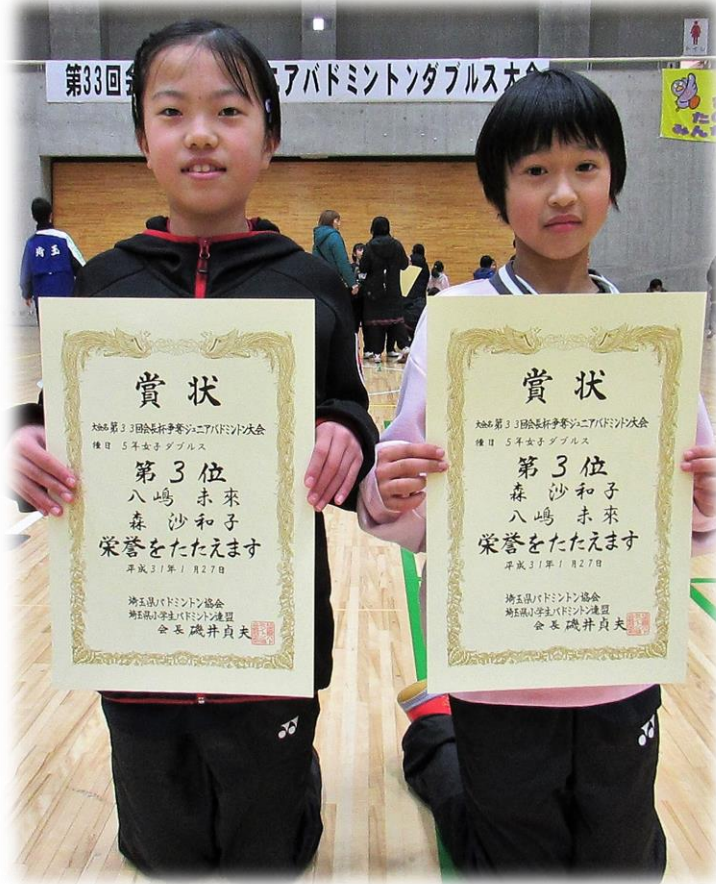 第33回会 ニアバドミントンダブルス大会
トイレ
た
みん
埼玉
賞状
大会名 第33回会長杯争奪ジュニアバドミントン大会
種目 5年女子ダブルス
第3位
八嶋 未來
森 沙和子
栄誉をたたえます
平成31年1月27日
埼玉県バドミントン協会
埼玉県小学生バドミントン連盟
会長 磯井貞夫
賞状
大会名 第33回会長杯争奪ジュニアバドミントン大会
種目 5年女子ダブルス
第3位
森 沙和子
八嶋 未來
栄誉をたたえます
平成31年1月27日
埼玉県バドミントン協会
埼玉県小学生バドミントン連盟
会長 磯井貞夫